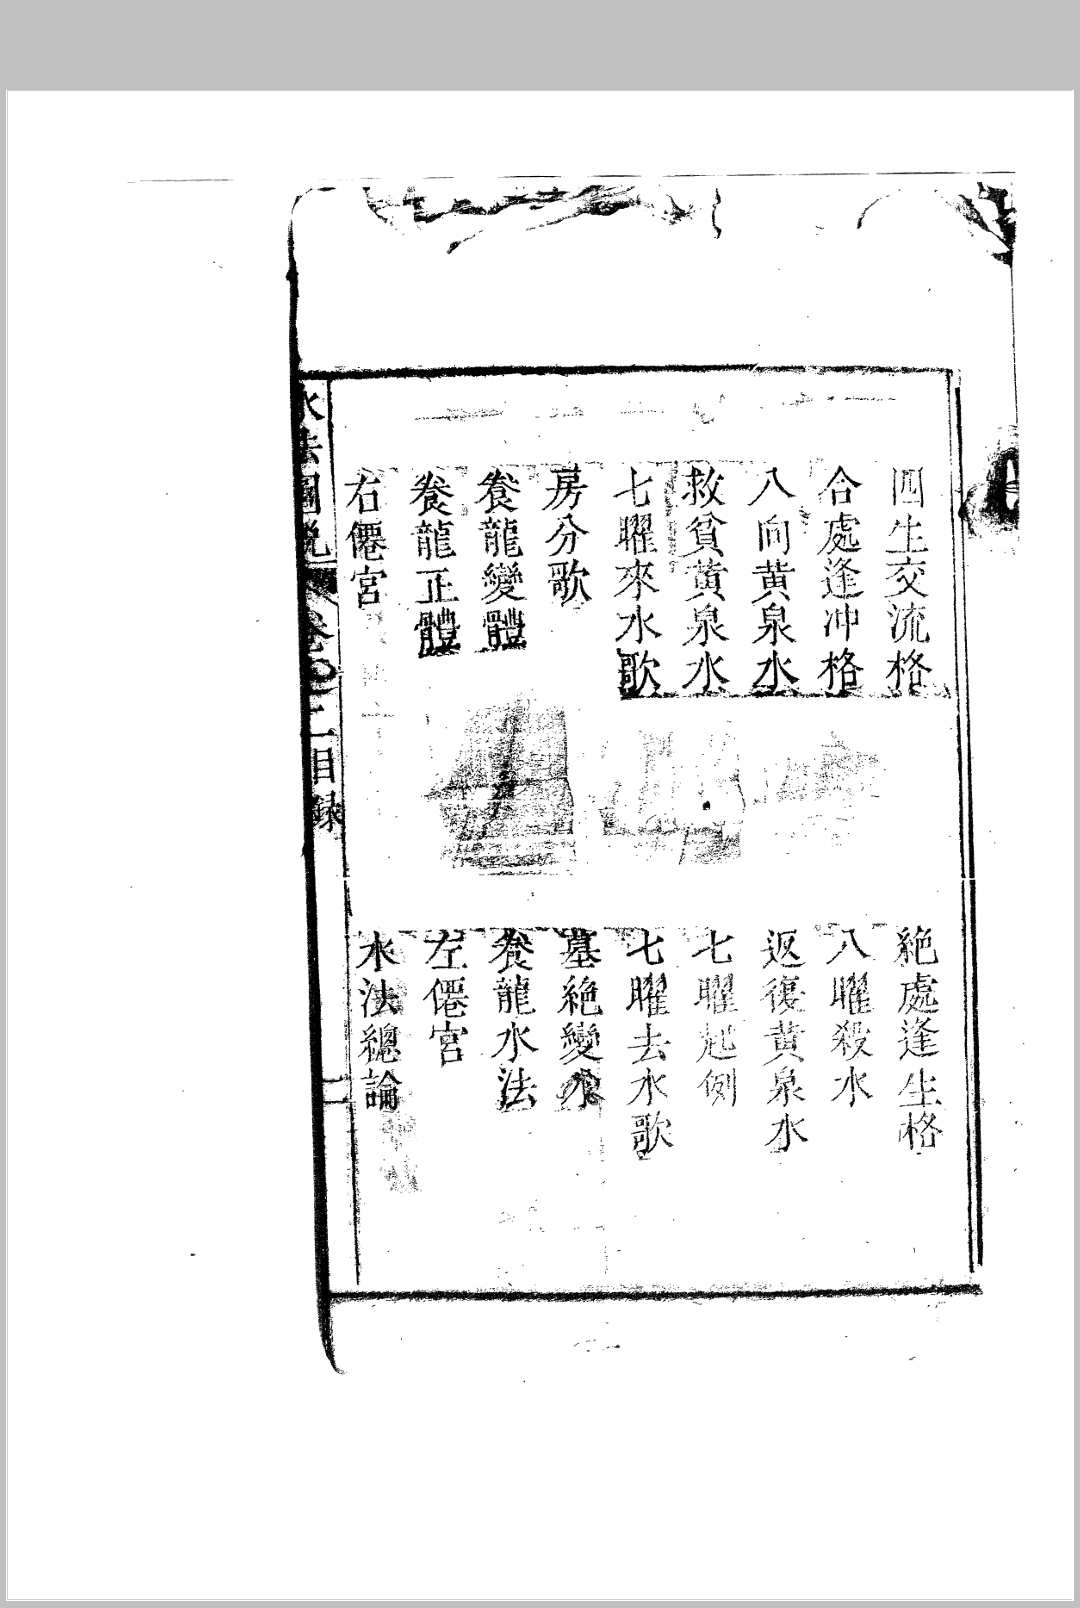 四生交流格
絶處逢生格
合處逢冲格
八曜殺水
八向黄泉水
返復黄泉水
救貧黄泉水
七曜起例
七曜來水歌
七曜去水歌
房分歌
墓絶變水
養龍變體
養龍水法
養龍正體
左僊宮
右僊宮
水法總論
水法圖説
卷之二目録
二